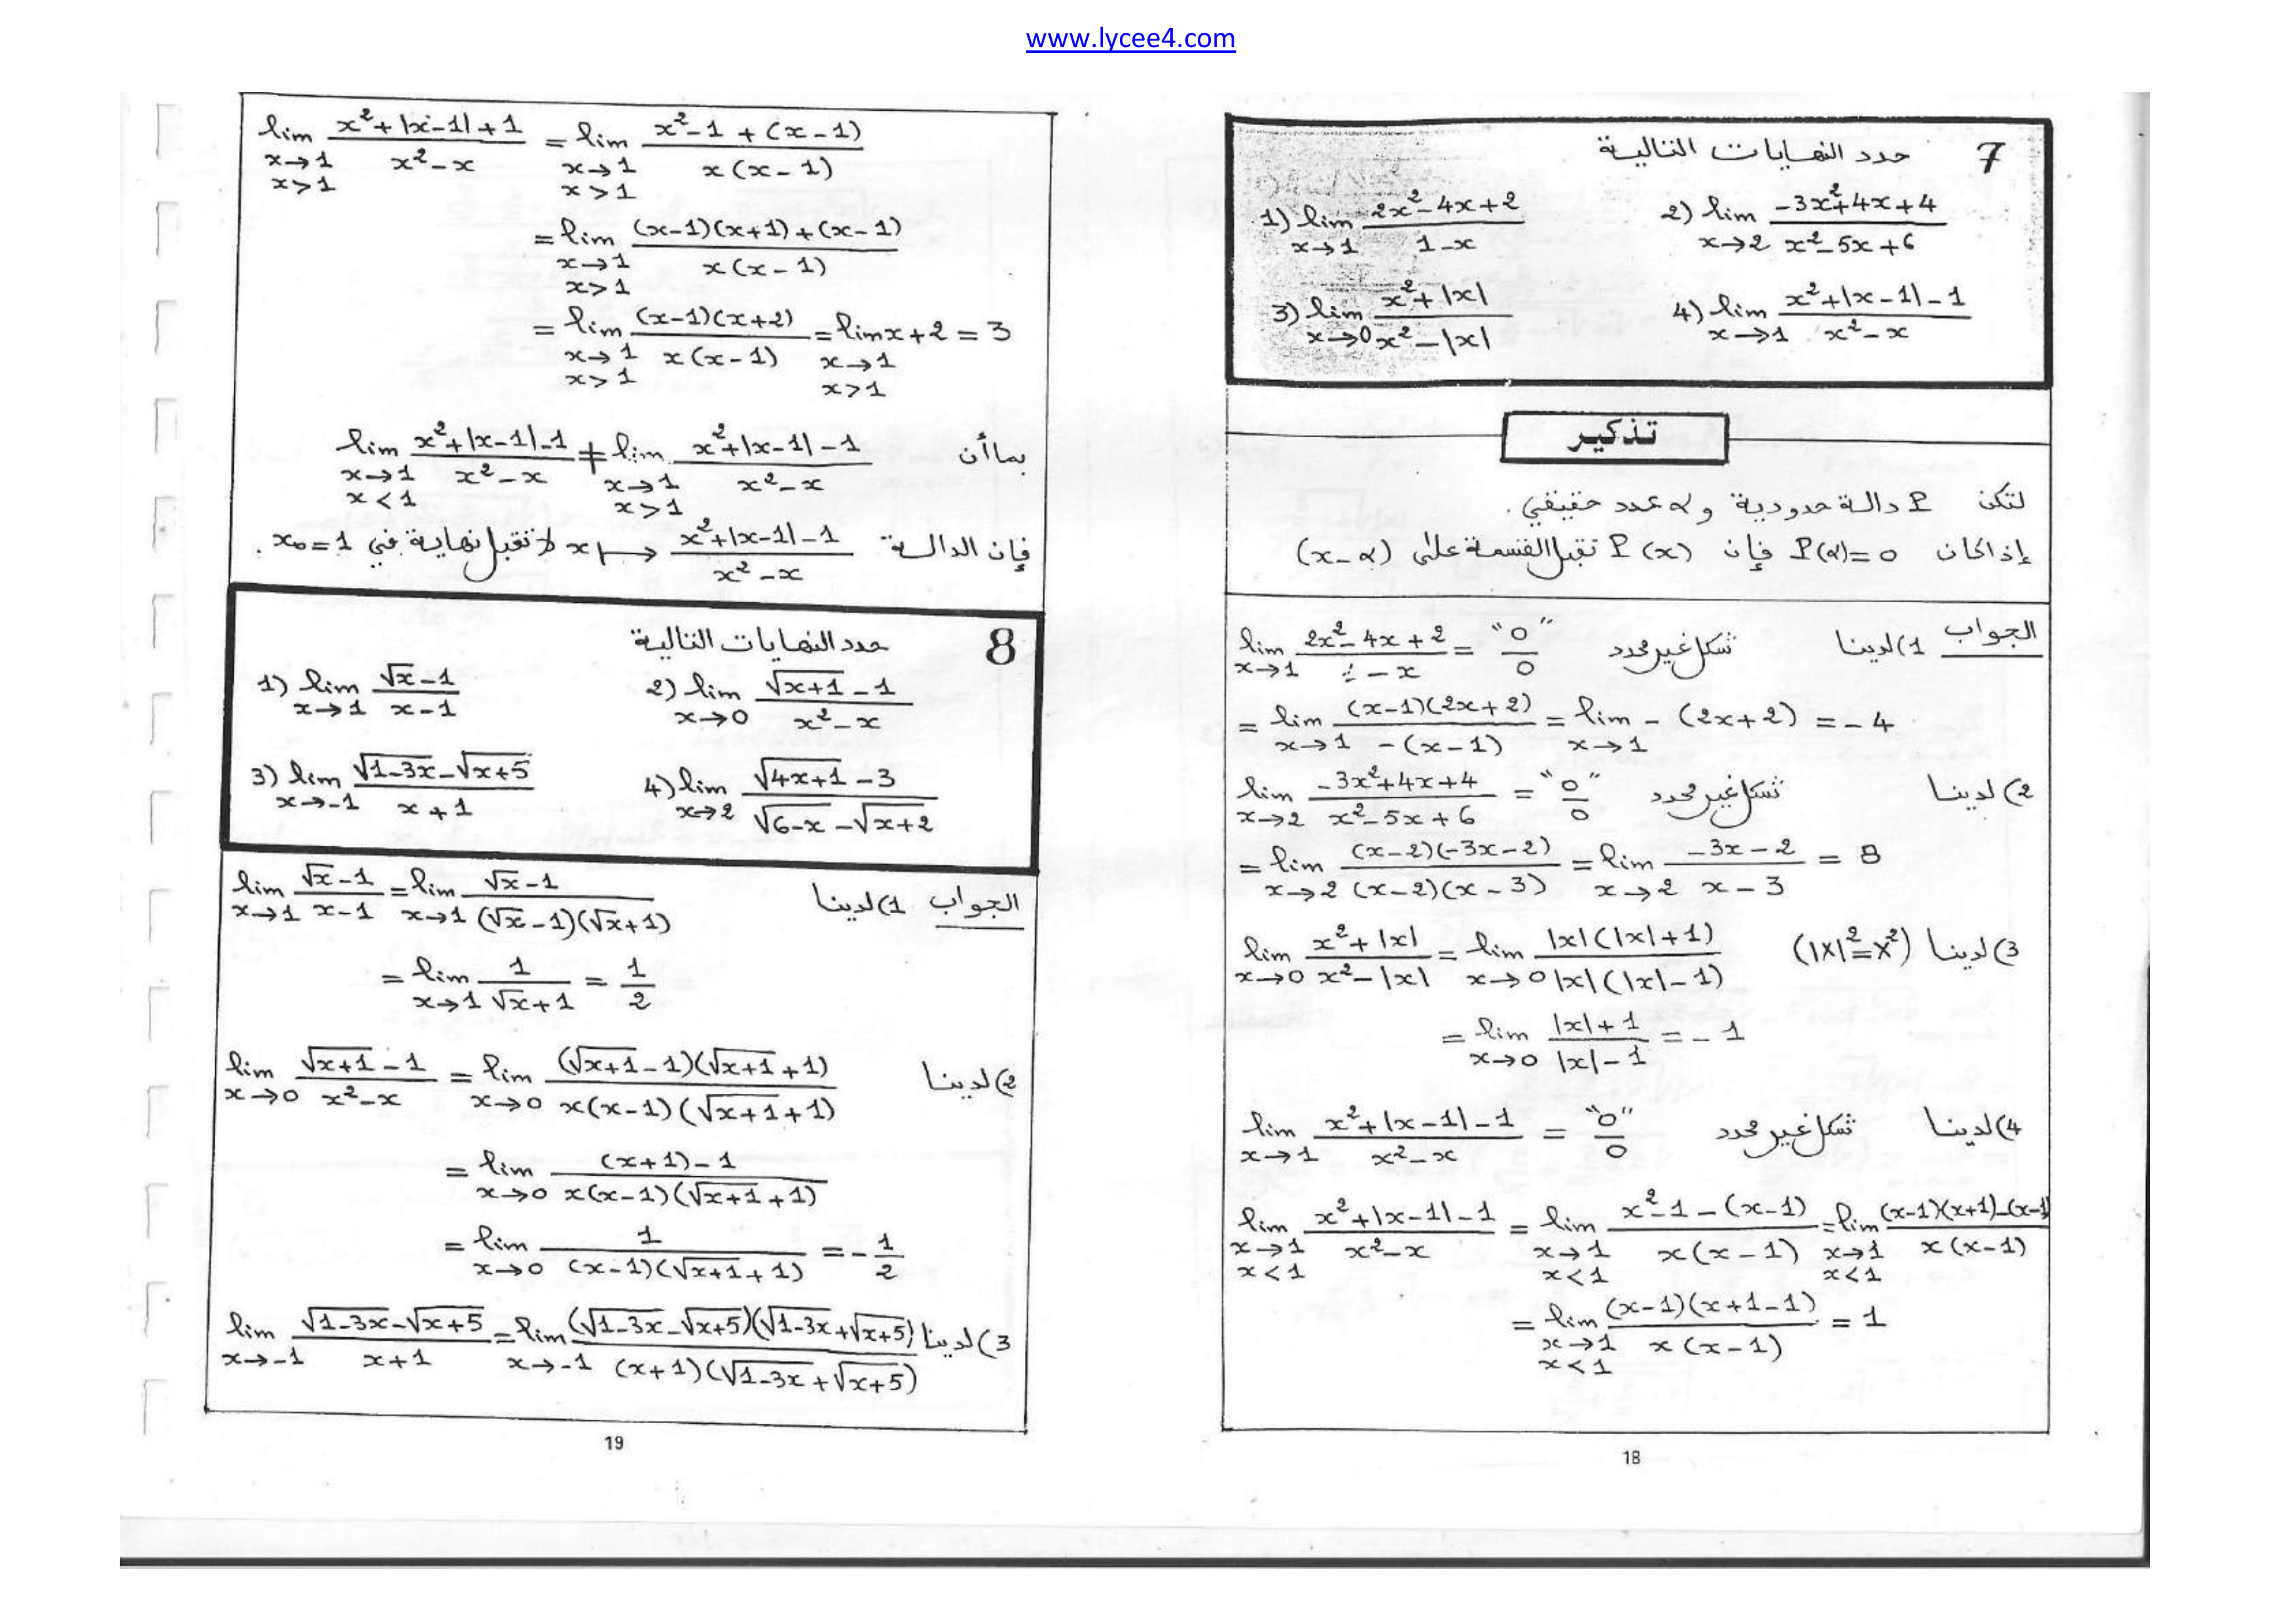 www.lycee4.com
7 حدد النهايات التالية
1) lim_{x→1} (2x²-4x+2)/(1-x)  2) lim_{x→2} (-3x²+4x+4)/(x²-5x+6)
3) lim_{x→0} (x²+|x|)/(x²-|x|)  4) lim_{x→1} (x²+|x-1|-1)/(x²-x)
تذكير
لتكن P دالة حدودية و α عدد حقيقي.
إذا كان P(α)=0 فإن P(x) تقبل القسمة على (x-α)
الجواب 1) لدينا lim_{x→1} (2x²-4x+2)/(1-x) = "0/0" شكل غير محدد
= lim_{x→1} (x-1)(2x+2)/(-(x-1)) = lim_{x→1} -(2x+2) = -4
2) لدينا lim_{x→2} (-3x²+4x+4)/(x²-5x+6) = "0/0" شكل غير محدد
= lim_{x→2} (x-2)(-3x-2)/((x-2)(x-3)) = lim_{x→2} (-3x-2)/(x-3) = 8
3) لدينا (|x|²=x²) lim_{x→0} (x²+|x|)/(x²-|x|) = lim_{x→0} |x|(|x|+1)/(|x|(|x|-1))
= lim_{x→0} (|x|+1)/(|x|-1) = -1
4) لدينا lim_{x→1} (x²+|x-1|-1)/(x²-x) = "0/0" شكل غير محدد
lim_{x→1, x<1} (x²+|x-1|-1)/(x²-x) = lim_{x→1, x<1} (x²-1-(x-1))/(x(x-1)) = lim_{x→1, x<1} ((x-1)(x+1)-(x-1))/(x(x-1))
= lim_{x→1, x<1} (x-1)(x+1-1)/(x(x-1)) = 1
18
lim_{x→1, x>1} (x²+|x-1|+1)/(x²-x) = lim_{x→1, x>1} (x²-1+(x-1))/(x(x-1))
= lim_{x→1, x>1} ((x-1)(x+1)+(x-1))/(x(x-1))
= lim_{x→1, x>1} (x-1)(x+2)/(x(x-1)) = lim_{x→1, x>1} x+2 = 3
بما أن lim_{x→1, x<1} (x²+|x-1|-1)/(x²-x) ≠ lim_{x→1, x>1} (x²+|x-1|-1)/(x²-x)
فإن الدالة x ↦ (x²+|x-1|-1)/(x²-x) لا تقبل نهاية في x₀=1.
8 حدد النهايات التالية
1) lim_{x→1} (√x-1)/(x-1)  2) lim_{x→0} (√(x+1)-1)/(x²-x)
3) lim_{x→-1} (√(1-3x)-√(x+5))/(x+1)  4) lim_{x→2} (√(4x+1)-3)/(√(6-x)-√(x+2))
الجواب 1) لدينا lim_{x→1} (√x-1)/(x-1) = lim_{x→1} (√x-1)/((√x-1)(√x+1))
= lim_{x→1} 1/(√x+1) = 1/2
2) لدينا lim_{x→0} (√(x+1)-1)/(x²-x) = lim_{x→0} (√(x+1)-1)(√(x+1)+1)/(x(x-1)(√(x+1)+1))
= lim_{x→0} ((x+1)-1)/(x(x-1)(√(x+1)+1))
= lim_{x→0} 1/((x-1)(√(x+1)+1)) = -1/2
3) لدينا lim_{x→-1} (√(1-3x)-√(x+5))/(x+1) = lim_{x→-1} (√(1-3x)-√(x+5))(√(1-3x)+√(x+5))/((x+1)(√(1-3x)+√(x+5)))
19